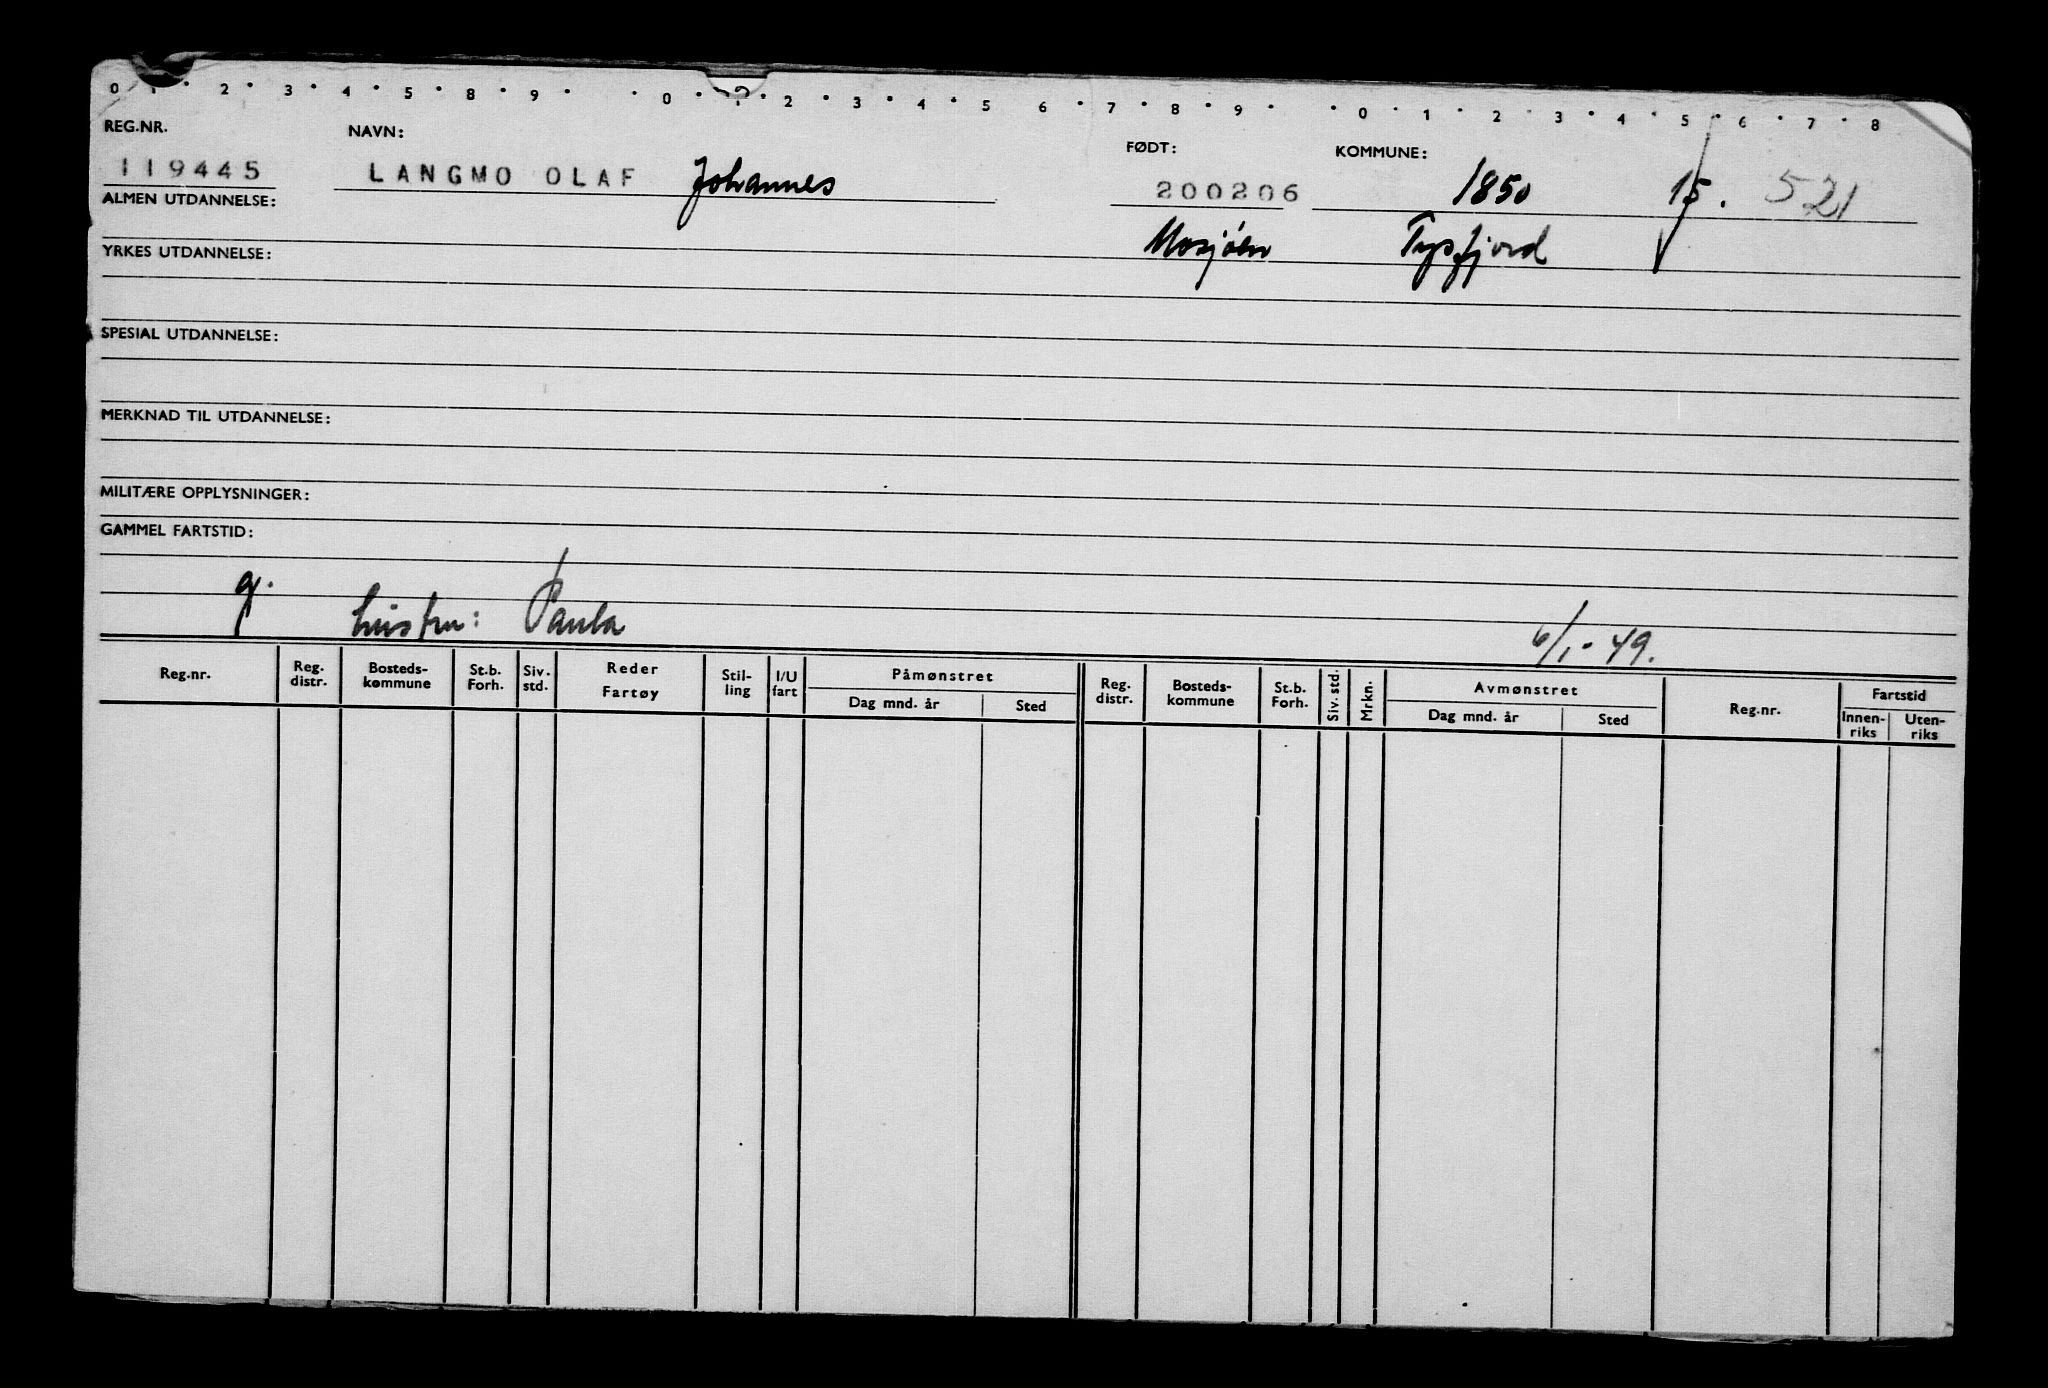 0 · 1 · 2 · 3 · 4 · 5 · 8 · 9 · · 0 · 1 · 2 · 3 · 4 · 5 6 · 7 · 8 · 9 · · 0 · 1 · 2 · 3 · 4 · 5 · 6 · 7 · 8
REG.NR. NAVN: FØDT: KOMMUNE:
119445 LANGMO OLAF Johannes 200206 1850 15. 521
ALMEN UTDANNELSE:
Mosjøen Tysfjord
YRKES UTDANNELSE:
SPESIAL UTDANNELSE:
MERKNAD TIL UTDANNELSE:
MILITÆRE OPPLYSNINGER:
GAMMEL FARTSTID:
g. hustru: Paula 6/1-49.
Reg.nr. Reg. distr. Bosteds-kommune St.b. Forh. Siv. std. Reder Fartøy Stil-ling I/U fart Påmønstret Dag mnd. år Sted Reg. distr. Bosteds-kommune St.b. Forh. Siv. std. Mrkn. Avmønstret Dag mnd. år Sted Reg.nr. Fartstid Innen-riks Uten-riks